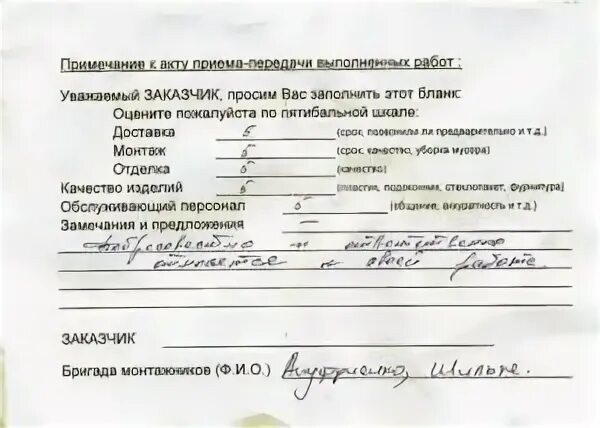 Примечание к акту приема-передачи выполненных работ :
Уважаемый ЗАКАЗЧИК, просим Вас заполнить этот бланк
Оцените пожалуйста по пятибальной шкале:
Доставка 5 (срок, позвонили ли предварительно и т.д.)
Монтаж 5 (срок, качество, уборка мусора)
Отделка 5 (качество)
Качество изделий 5 (пластик, подоконник, стеклопакет, фурнитура)
Обслуживающий персонал 5 (общение, аккуратность и т.д.)
Замечания и предложения —
добросовестно и ответственно
относятся к своей работе.
ЗАКАЗЧИК
Бригада монтажников (Ф.И.О.)